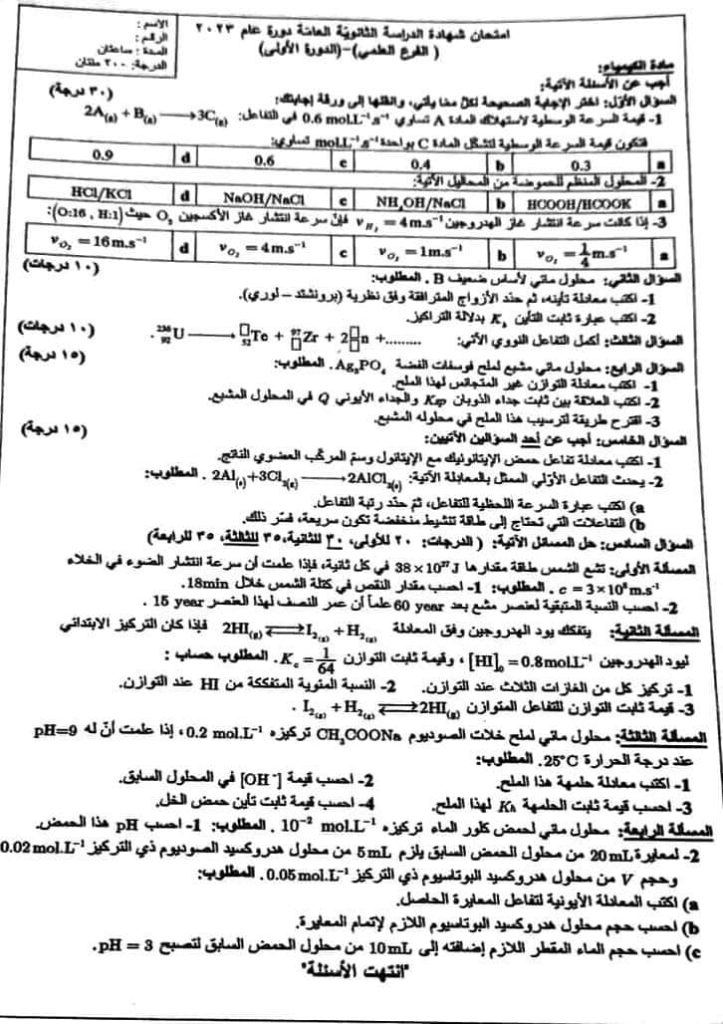 امتحان شهادة الدراسة الثانوية العامة دورة عام ٢٠٢٣
( الفرع العلمي)-(الدورة الأولى)
الاسم :
الرقم :
المدة : ساعتان
الدرجة: ٢٠٠ مئتان
مادة الكيمياء:
أجب عن الأسئلة الآتية:
السؤال الأول: اختر الإجابة الصحيحة لكل مما يأتي، وانقلها إلى ورقة إجابتك: (٣٠ درجة)
1- قيمة السرعة الوسطية لاستهلاك المادة A تساوي 0.6 mol.L⁻¹.s⁻¹ في التفاعل: 2A(g) + B(g) ⟶ 3C(g)
فتكون قيمة السرعة الوسطية لتشكل المادة C بواحدة mol.L⁻¹.s⁻¹ تساوي:
a 0.3 b 0.4 c 0.6 d 0.9
2- المحلول المنظم للحموضة من المحاليل الآتية:
a HCOOH/HCOOK b NH₄OH/NaCl c NaOH/NaCl d HCl/KCl
3- إذا كانت سرعة انتشار غاز الهدروجين v_H₂ = 4m.s⁻¹ فإن سرعة انتشار غاز الأكسجين O₂ حيث (O:16 , H:1):
a v_O₂ = 1/4 m.s⁻¹ b v_O₂ = 1m.s⁻¹ c v_O₂ = 4m.s⁻¹ d v_O₂ = 16m.s⁻¹
السؤال الثاني: محلول مائي لأساس ضعيف B . المطلوب: (١٠ درجات)
1- اكتب معادلة تأينه، ثم حدد الأزواج المترافقة وفق نظرية (برونشتد – لوري).
2- اكتب عبارة ثابت التأين K_b بدلالة التراكيز.
السؤال الثالث: أكمل التفاعل النووي الآتي: ²³⁶₉₂U ⟶ □₅₂Te + ⁹⁷□Zr + 2□□n +......... . (١٠ درجات)
السؤال الرابع: محلول مائي مشبع لملح فوسفات الفضة Ag₃PO₄ . المطلوب: (١٥ درجة)
1- اكتب معادلة التوازن غير المتجانس لهذا الملح.
2- اكتب العلاقة بين ثابت جداء الذوبان Ksp والجداء الأيوني Q في المحلول المشبع.
3- اقترح طريقة لترسيب هذا الملح في محلوله المشبع.
السؤال الخامس: أجب عن أحد السؤالين الآتيين: (١٥ درجة)
1- اكتب معادلة تفاعل حمض الإيتانوئيك مع الإيتانول وسم المركب العضوي الناتج.
2- يحدث التفاعل الأولي الممثل بالمعادلة الآتية: 2Al(s)+3Cl₂(g) ⟶ 2AlCl₃(s) . المطلوب:
a) اكتب عبارة السرعة اللحظية للتفاعل، ثم حدد رتبة التفاعل.
b) التفاعلات التي تحتاج إلى طاقة تنشيط منخفضة تكون سريعة، فسر ذلك.
السؤال السادس: حل المسائل الآتية: ( الدرجات: ٢٠ للأولى، ٣٠ للثانية، ٣٥ للثالثة، ٣٥ للرابعة)
المسألة الأولى: تشع الشمس طاقة مقدارها 38 × 10²⁷ J في كل ثانية، فإذا علمت أن سرعة انتشار الضوء في الخلاء
c = 3×10⁸m.s⁻¹ . المطلوب: 1- احسب مقدار النقص في كتلة الشمس خلال 18min.
2- احسب النسبة المتبقية لعنصر مشع بعد 60 year علماً أن عمر النصف لهذا العنصر 15 year .
المسألة الثانية: يتفكك يود الهدروجين وفق المعادلة 2HI(g) ⇌ I₂(g) + H₂(g) فإذا كان التركيز الابتدائي
ليود الهدروجين [HI]₀ = 0.8mol.L⁻¹ ، وقيمة ثابت التوازن K_c = 1/64 . المطلوب حساب :
1- تركيز كل من الغازات الثلاث عند التوازن. 2- النسبة المئوية المتفككة من HI عند التوازن.
3- قيمة ثابت التوازن للتفاعل المتوازن I₂(g) + H₂(g) ⇌ 2HI(g) .
المسألة الثالثة: محلول مائي لملح خلات الصوديوم CH₃COONa تركيزه 0.2 mol.L⁻¹ ، إذا علمت أن له pH=9
عند درجة الحرارة 25°C. المطلوب:
1- اكتب معادلة حلمهة هذا الملح. 2- احسب قيمة [OH⁻] في المحلول السابق.
3- احسب قيمة ثابت الحلمهة K_h لهذا الملح. 4- احسب قيمة ثابت تأين حمض الخل.
المسألة الرابعة: محلول مائي لحمض كلور الماء تركيزه 10⁻² mol.L⁻¹ . المطلوب: 1- احسب pH هذا الحمض.
2- لمعايرة 20mL من محلول الحمض السابق يلزم 5mL من محلول هدروكسيد الصوديوم ذي التركيز 0.02mol.L⁻¹
وحجم V من محلول هدروكسيد البوتاسيوم ذي التركيز 0.05mol.L⁻¹. المطلوب:
a) اكتب المعادلة الأيونية لتفاعل المعايرة الحاصل.
b) احسب حجم محلول هدروكسيد البوتاسيوم اللازم لإتمام المعايرة.
c) احسب حجم الماء المقطر اللازم إضافته إلى 10mL من محلول الحمض السابق لتصبح pH = 3 .
"انتهت الأسئلة"